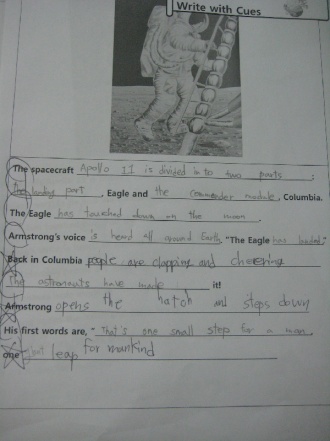 Write with Cues
The spacecraft Apollo 11 is divided in to two parts:
the landing part, Eagle and the commander module, Columbia.
The Eagle has touched down on the moon.
Armstrong's voice is heard all around Earth, "The Eagle has landed."
Back in Columbia people are clapping and cheering
The astronauts have made it!
Armstrong opens the hatch and steps down
His first words are, "That's one small step for a man,
one giant leap for mankind